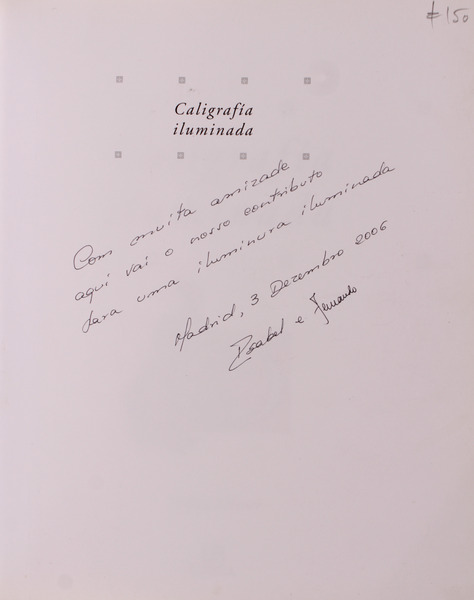 €150
Caligrafía
iluminada
Com muita amizade
aqui vai o nosso contributo
para uma iluminura iluminada
Madrid, 3 Dezembro 2006
Isabel e Fernando